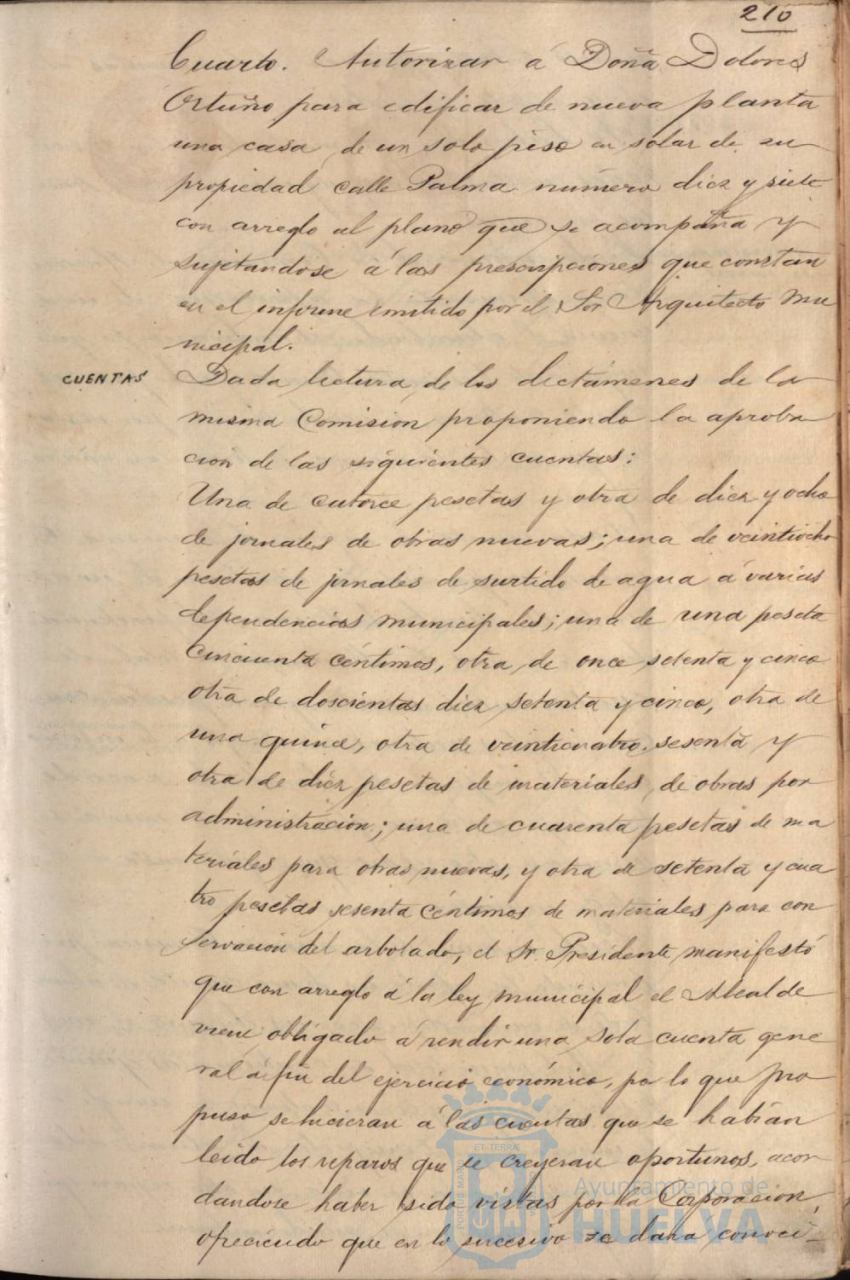 210
Cuarto. Autorizar á Doña Dolores
Ortuño para edificar de nueva planta
una casa de un solo piso en solar de su
propiedad calle Palma número diez y siete
con arreglo al plano que se acompaña y
sujetandose á las prescripciones que constan
en el informe emitido por el Sor Arquitecto Mu
nicipal.
CUENTAS
Dada lectura de los dictámenes de la
misma Comision proponiendo la aproba
cion de las siguientes cuentas:
Una de catorce pesetas y otra de diez y ocho
de jornales de obras nuevas; una de veintiocho
pesetas de jornales de surtido de agua á varias
dependencias municipales; una de una peseta
cincuenta céntimos, otra de once setenta y cinco
otra de doscientas diez setenta y cinco, otra de
una quince, otra de veinticuatro, sesenta y
otra de diez pesetas de materiales, de obras por
administración; una de cuarenta pesetas de ma
teriales para obras nuevas, y otra de setenta y cua
tro pesetas sesenta céntimos de materiales para con
servación del arbolado, el Sr. Presidente manifestó
que con arreglo á la ley municipal el Alcalde
viene obligado á rendir una sola cuenta gene
ral á fin del ejercicio económico, por lo que pro
puso se hicieran á las cuentas que se habían
leido los reparos que se creyeran oportunos, acor
dandose haber sido vistas por la Corporacion,
ofreciendo que en lo sucesivo se daría conoci-
Ayuntamiento de
HUELVA